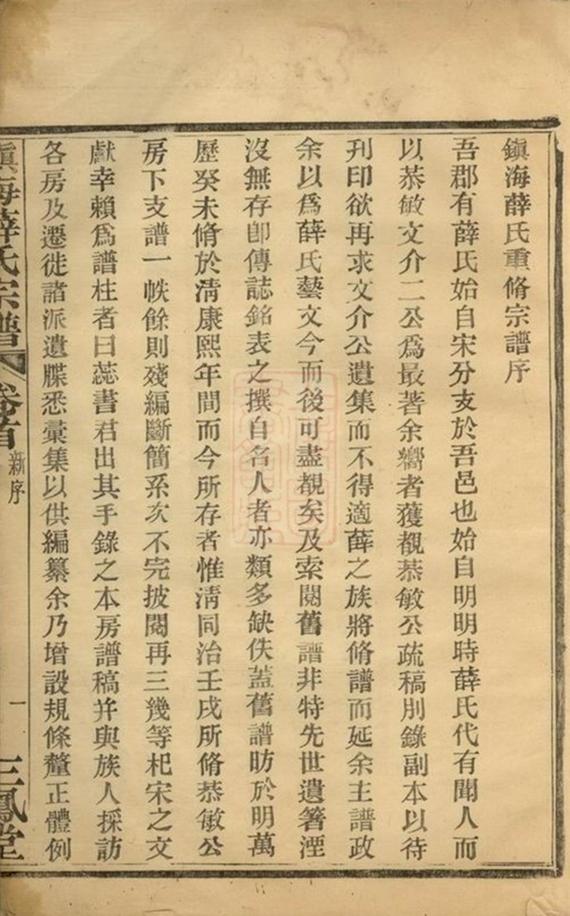 鎮海薛氏重脩宗譜序
吾郡有薛氏始自宋分支於吾邑也始自明明時薛氏代有聞人而
以恭敏文介二公爲最著余嚮者獲覩恭敏公疏稿別錄副本以待
刊印欲再求文介公遺集而不得適薛之族將脩譜而延余主譜政
余以爲薛氏藝文今而後可盡覩矣及索閱舊譜非特先世遺箸湮
沒無存卽傳誌銘表之撰自名人者亦類多缺佚蓋舊譜昉於明萬
歷癸未脩於淸康熙年間而今所存者惟淸同治壬戌所脩恭敏公
房下支譜一帙餘則殘編斷簡系次不完披閱再三幾等杞宋之文
獻幸賴爲譜柱者曰蕊書君出其手錄之本房譜稿幷與族人採訪
各房及遷徙諸派遺牒悉彙集以供編纂余乃增設規條釐正體例
鎮海薛氏宗譜 卷首 新序 一 三鳳堂